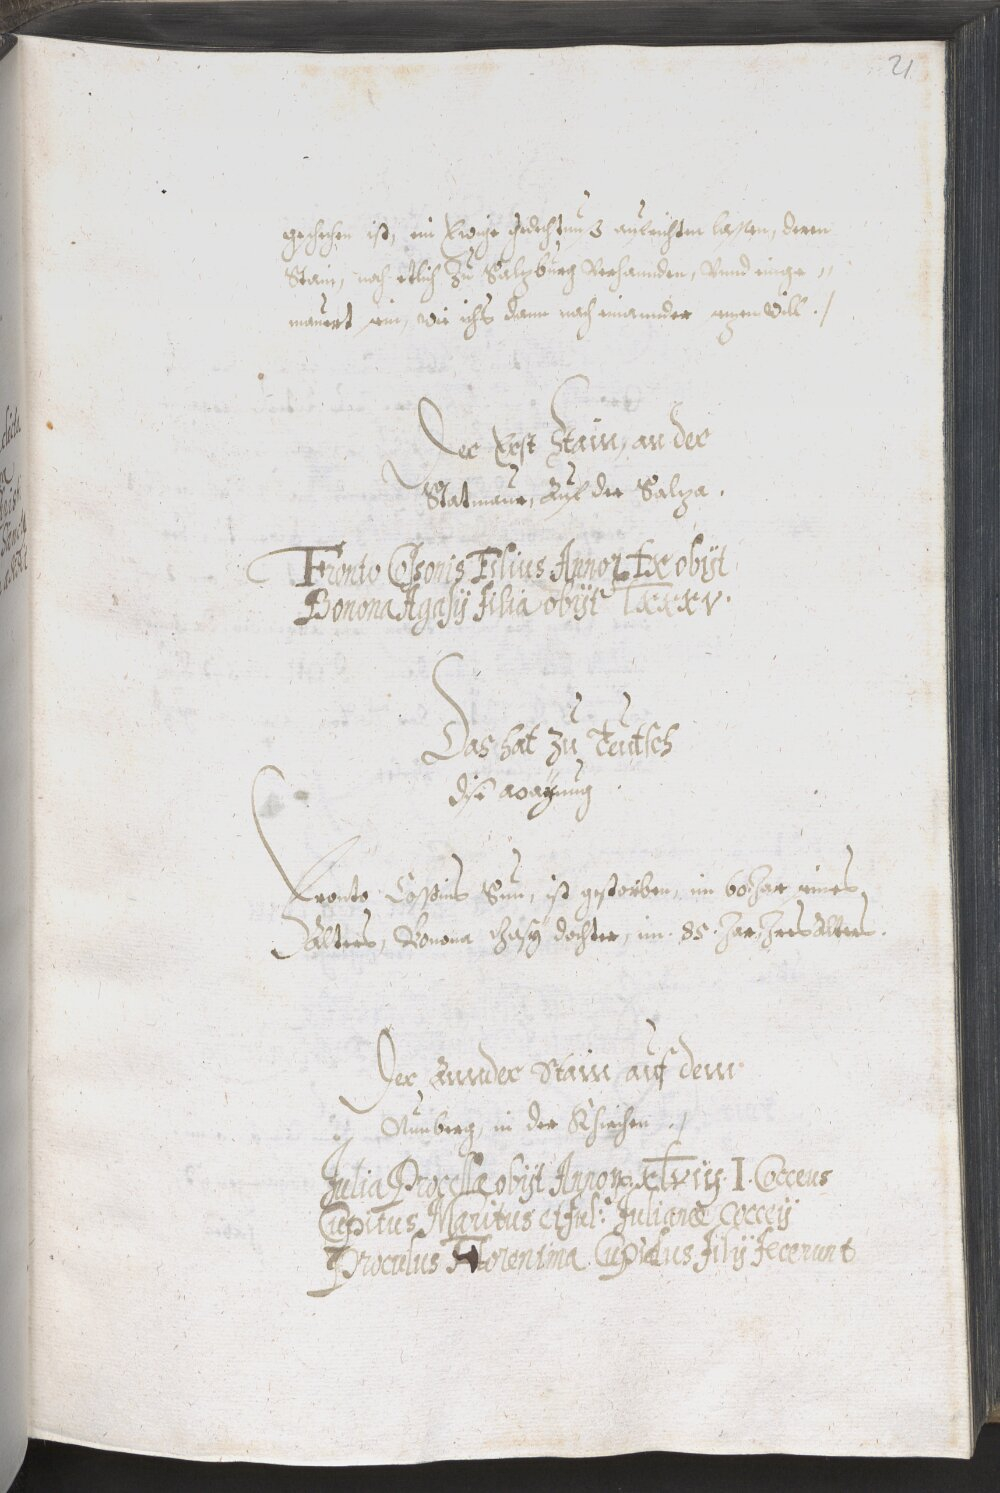 21
geschehen ist, ein Ewige gedechtnuß aufrichten lassen, deren
Stain, noch etlich Zu Salzburg Verhannden, Vnnd einge „
mauert sein, wie ichs dann nach einannder sezen will ./
Der Erst Stain, an der
Statmaur, Auf der Salza.
Fronto Cosonis Filius Annor. LX obijt
Bonona Agasij filia obijt LXXXV.
Das hat zu Teutsch
dise
Fronto Sun, ist gestorben, im 60 Jar seines
Alters, Bonona dochter, im. 85. Jar Jres Alters.
Der Annder Stain auf dem
Nunberg, in der Khirchen ./
Julia Procella obijt Annor. XLVIIJ. I. Cocceus
Cupitus Maritus et Jul: Julianæ Cocceij
Proculus Florentina Cupidus filij fecerunt